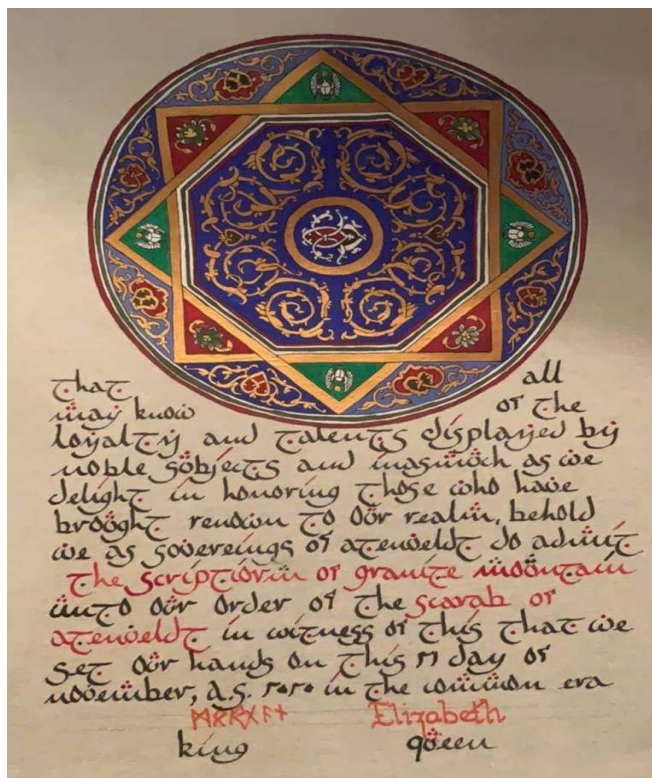 that all
may know of the
loyalty and talents displayed by
noble subjects and inasmuch as we
delight in honoring those who have
brought renown to our realm, behold
we as sovereings of atenveldt do admit
the scriptorium of granite mountain
unto our order of the scarab of
atenveldt in witness of this that we
set our hands on this ٢١ day of
november, a.s. ٢٠٢٠ in the common era
ᛗᛟᚱᚷᚨᚾ Elizabeth
king queen